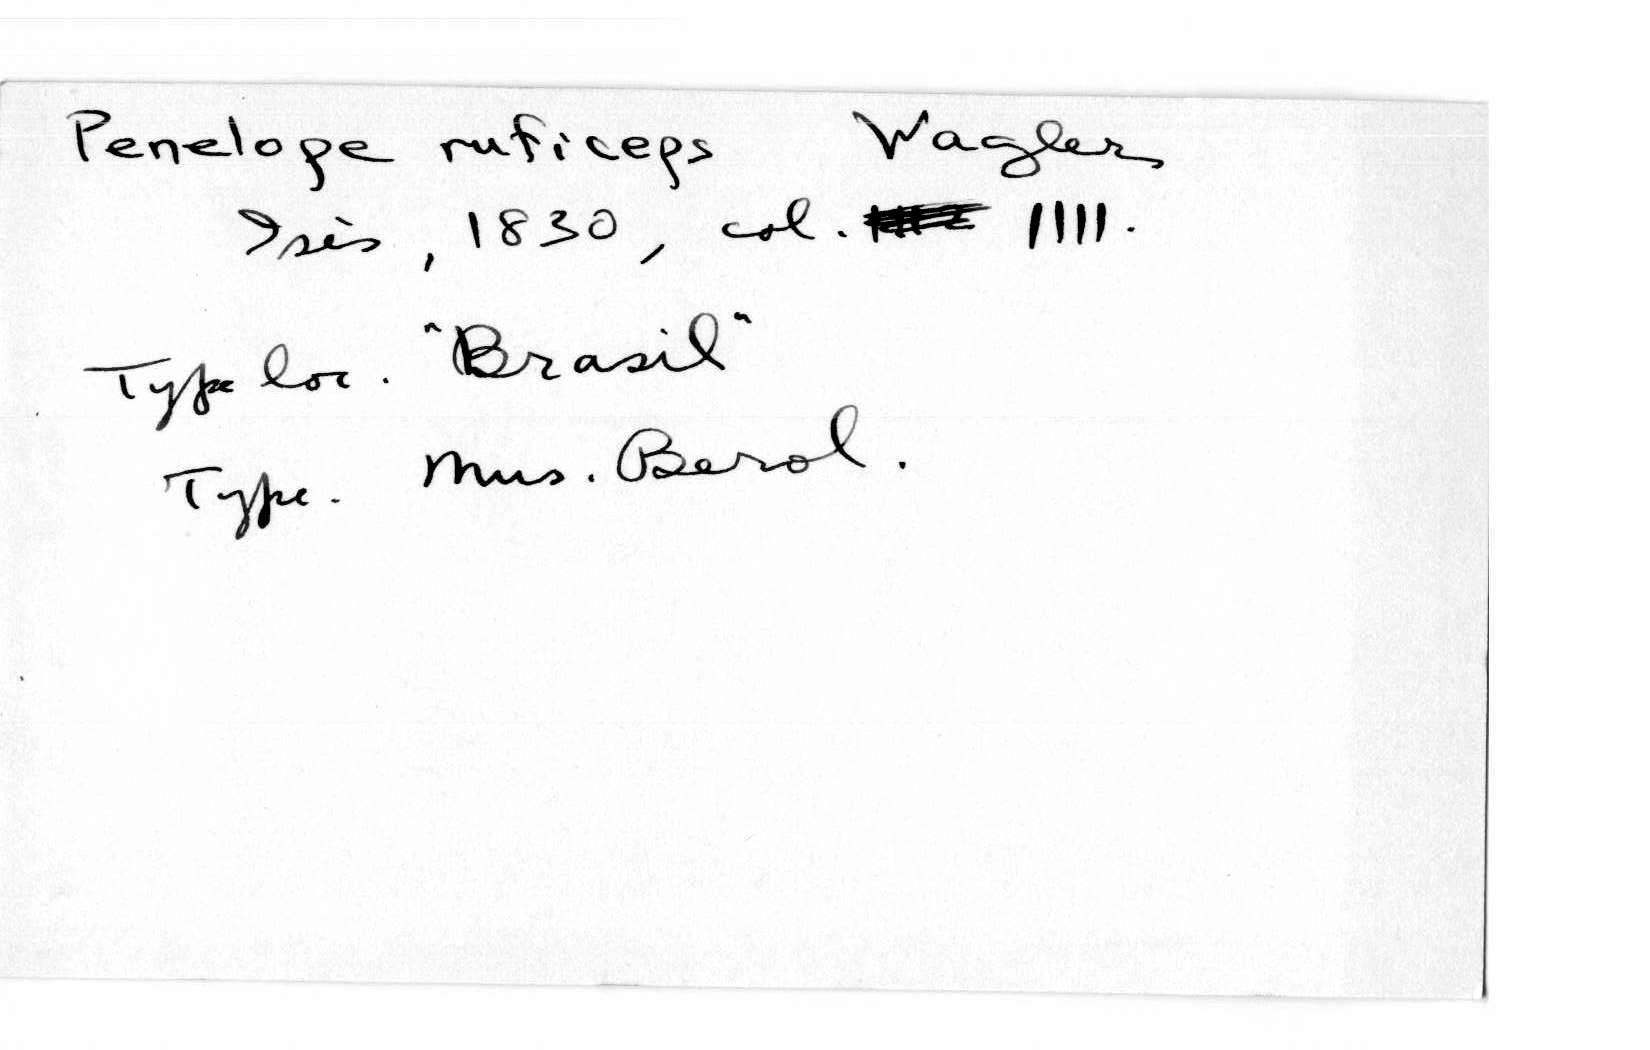 Penelope ruficeps Wagler
Isis, 1830, col. 1111.
Type loc. "Brasil"
Type. Mus. Berol.